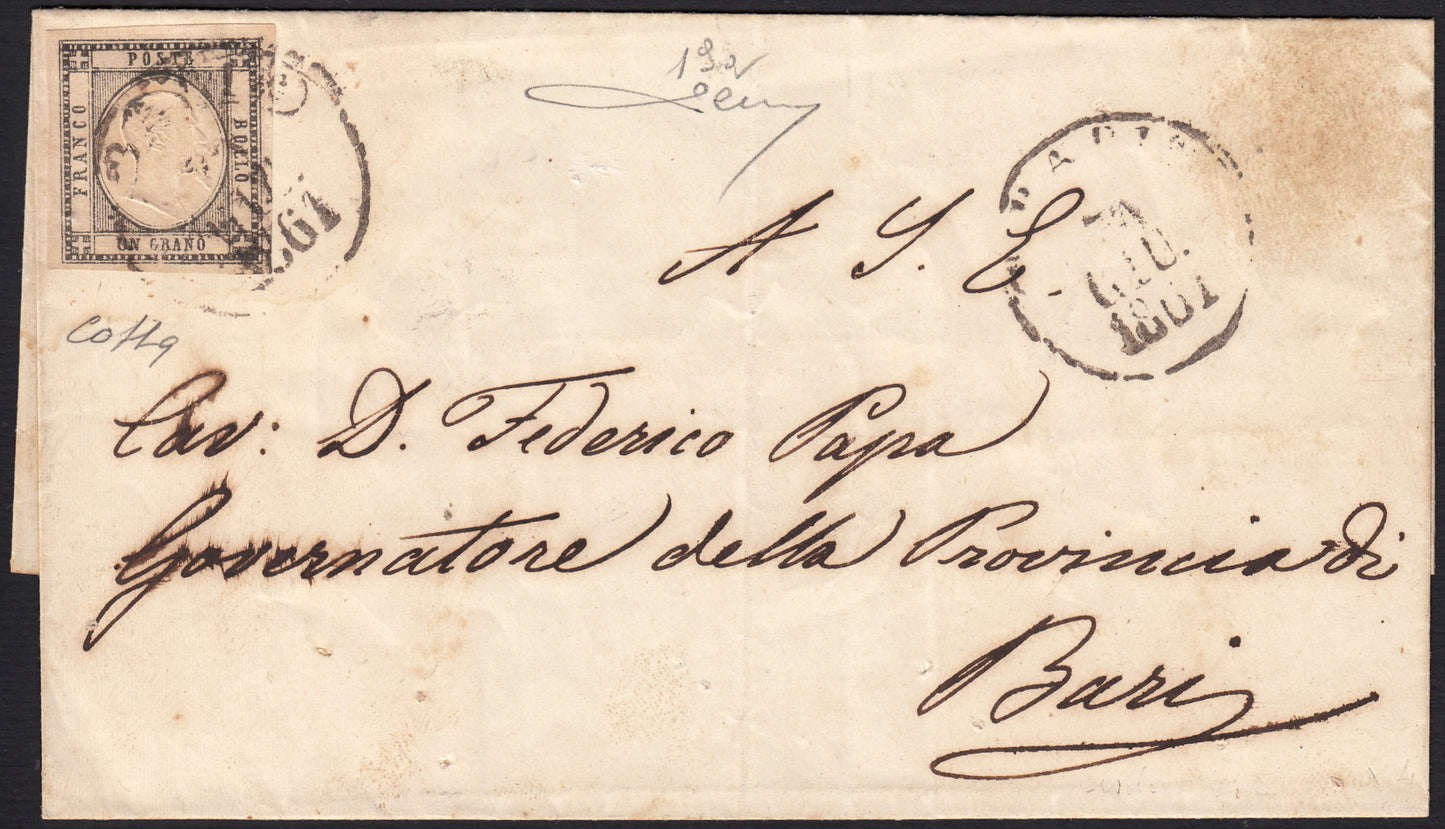 POSTE
FRANCO
BOLLO
UN GRANO
1861
192
A S. E.
GIU.
1861
Cav: D. Federico Papa
Governatore della Provincia di
Bari